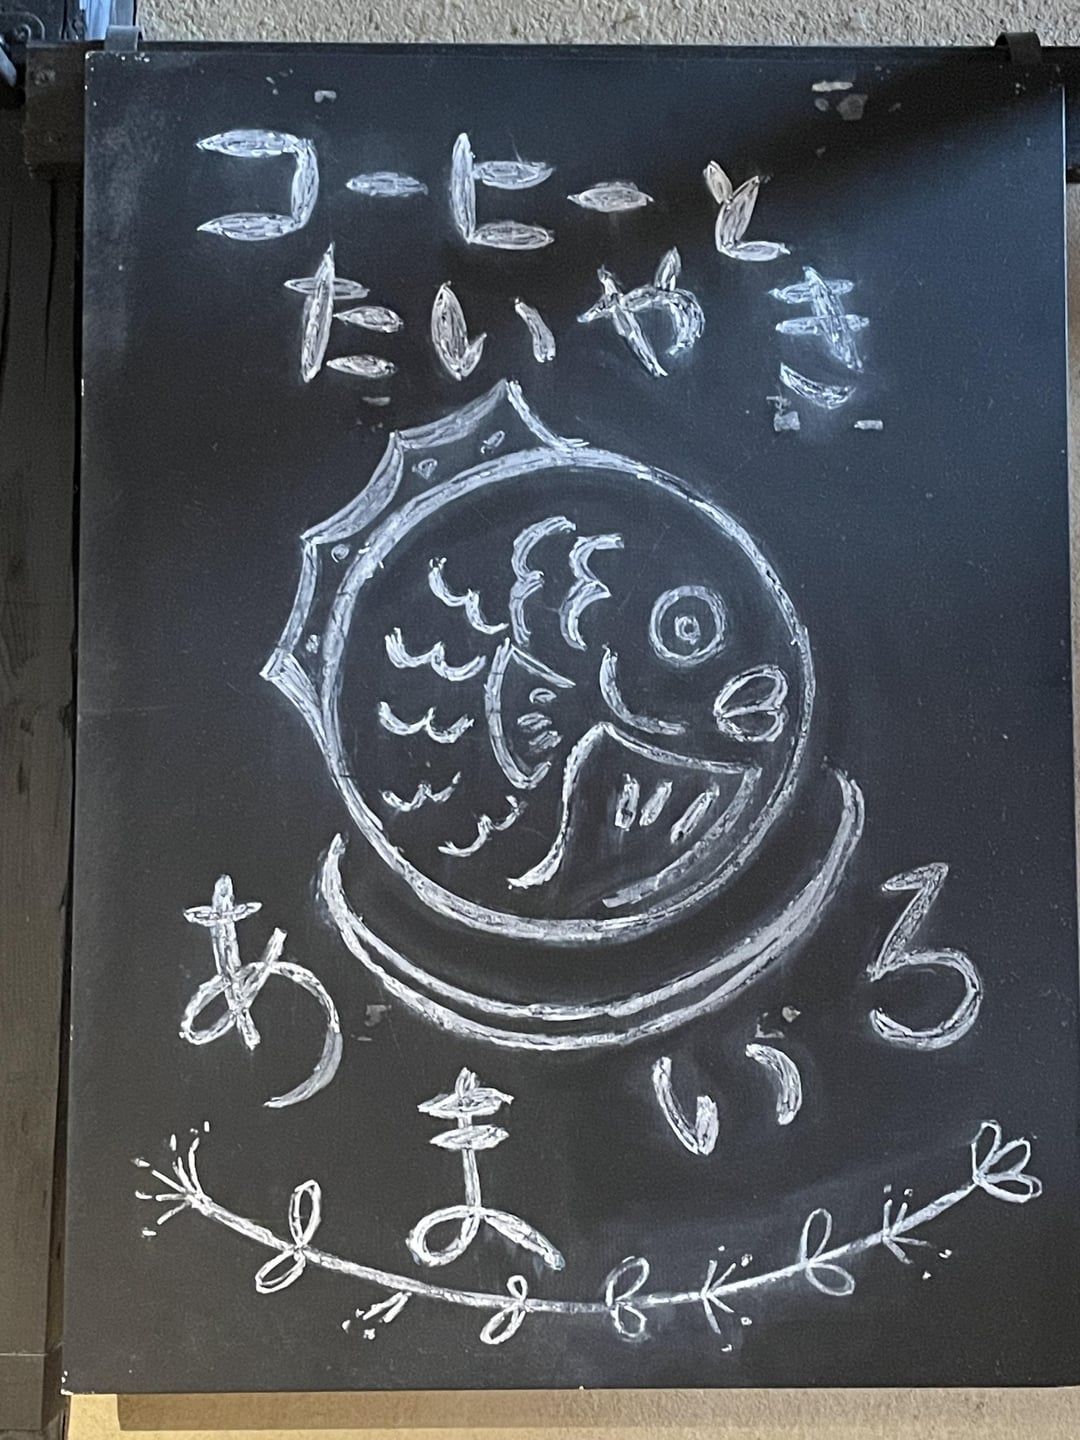 コーヒーと
たいやき
あまいろ